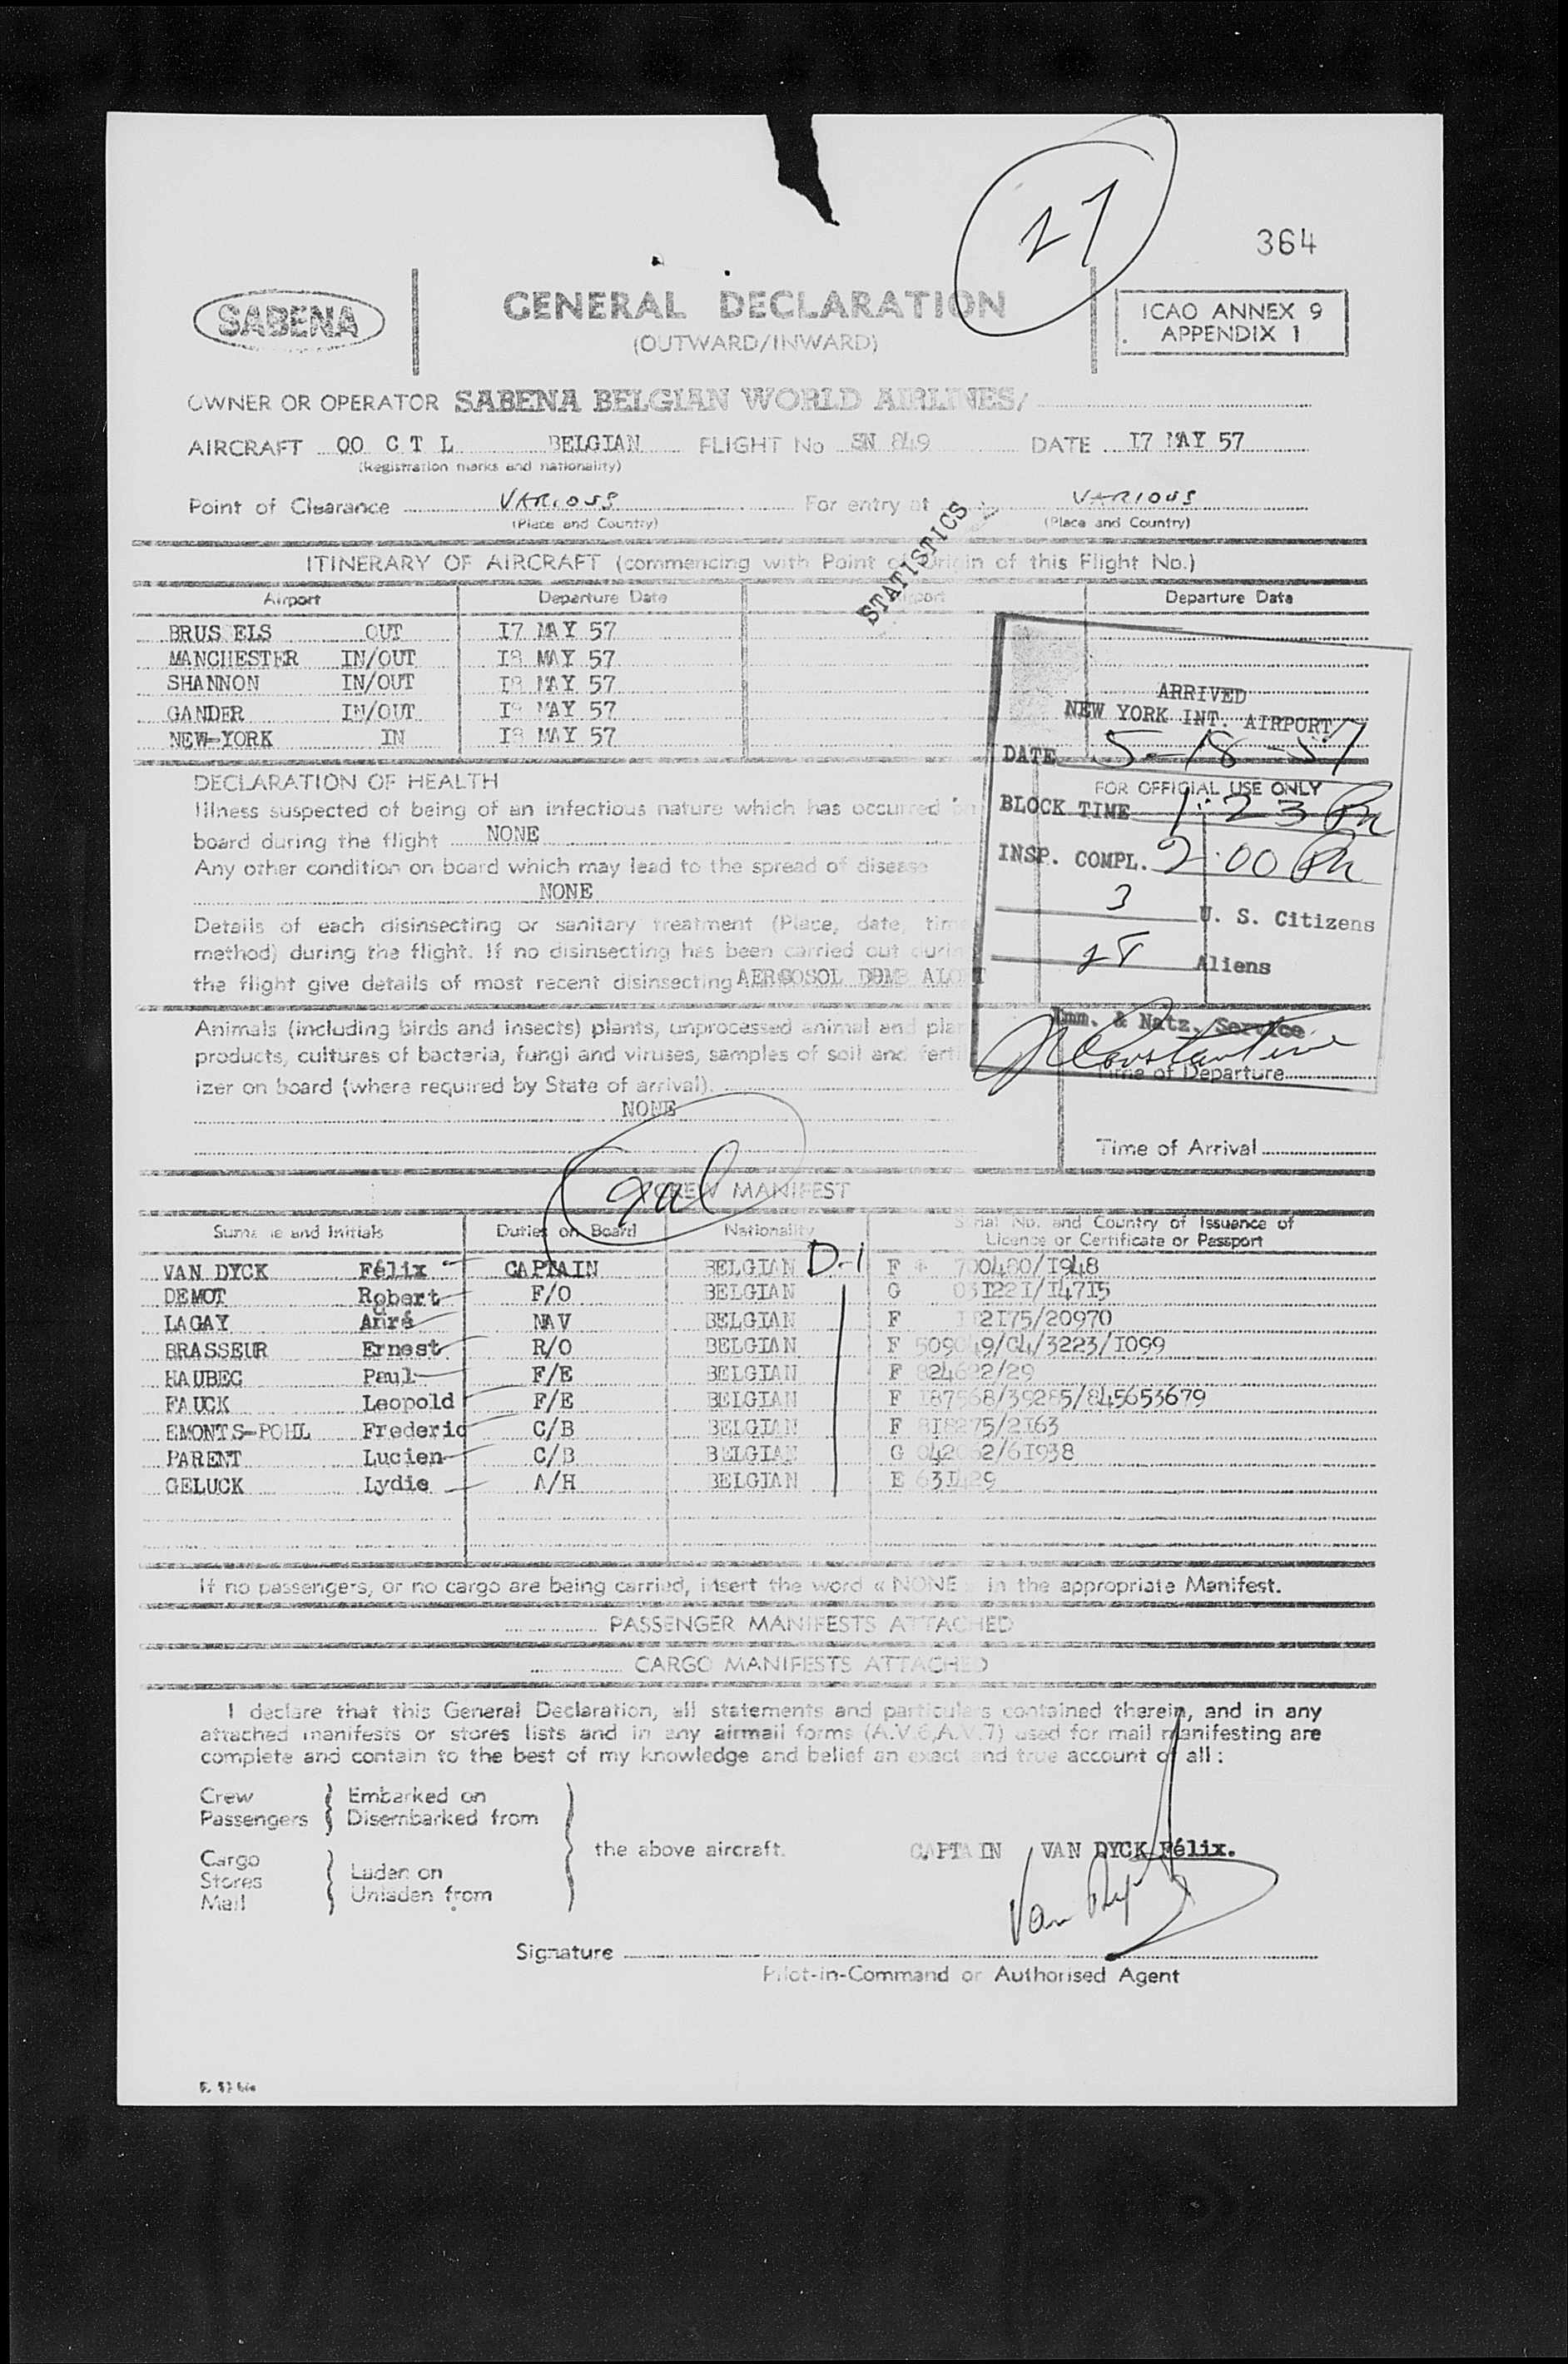 27
364
SABENA
GENERAL DECLARATION
(OUTWARD/INWARD)
ICAO ANNEX 9
APPENDIX 1
OWNER OR OPERATOR SABENA BELGIAN WORLD AIRLINES/
AIRCRAFT OO C T L BELGIAN FLIGHT No SN 849 DATE I7 MAY 57
(Registration marks and nationality)
Point of Clearance VARIOUS For entry at VARIOUS
(Place and Country) (Place and Country)
STATISTICS
ITINERARY OF AIRCRAFT (commencing with Point of Origin of this Flight No.)
Airport Departure Date Airport Departure Date
BRUSSELS OUT I7 MAY 57
MANCHESTER IN/OUT I8 MAY 57
SHANNON IN/OUT I8 MAY 57
GANDER IN/OUT I8 MAY 57
NEW-YORK IN I8 MAY 57
ARRIVED
NEW YORK INT. AIRPORT
DATE 5-18-57
FOR OFFICIAL USE ONLY
BLOCK TIME 1:23 Pm
INSP. COMPL. 2:00 Pm
3 U. S. Citizens
28 Aliens
Imm. & Natz. Service
Time of Departure
Time of Arrival
DECLARATION OF HEALTH
Illness suspected of being of an infectious nature which has occurred on
board during the flight NONE
Any other condition on board which may lead to the spread of disease
NONE
Details of each disinsecting or sanitary treatment (Place, date, time
method) during the flight. If no disinsecting has been carried out durin
the flight give details of most recent disinsecting AEROSOL BOMB ALOFT
Animals (including birds and insects) plants, unprocessed animal and plan
products, cultures of bacteria, fungi and viruses, samples of soil and fertil
izer on board (where required by State of arrival).
NONE
CREW MANIFEST
Surname and Initials Duties on Board Nationality Serial No. and Country of Issuance of
Licence or Certificate or Passport
VAN DYCK Félix CAPTAIN BELGIAN D-1 F 700480/I948
DEMOT Robert F/O BELGIAN G 03I22I/I47I5
LAGAY André NAV BELGIAN F 2I75/20970
BRASSEUR Ernest R/O BELGIAN F 509049/C4/3223/I099
HAUBEC Paul F/E BELGIAN F 824622/29
FAUCK Leopold F/E BELGIAN F I87568/39285/845653679
EMONTS-POHL Frederic C/B BELGIAN F 8I8275/2I63
PARENT Lucien C/B BELGIAN G 042062/6I938
GELUCK Lydie A/H BELGIAN E 63I429
If no passengers, or no cargo are being carried, insert the word « NONE » in the appropriate Manifest.
PASSENGER MANIFESTS ATTACHED
CARGO MANIFESTS ATTACHED
I declare that this General Declaration, all statements and particulars contained therein, and in any
attached manifests or stores lists and in any airmail forms (A.V.6,A.V.7) used for mail manifesting are
complete and contain to the best of my knowledge and belief an exact and true account of all :
Crew Embarked on
Passengers Disembarked from
the above aircraft.
Cargo
Stores Laden on
Mail Unladen from
CAPTAIN VAN DYCK Félix.
Van Dyck
Signature
Pilot-in-Command or Authorised Agent